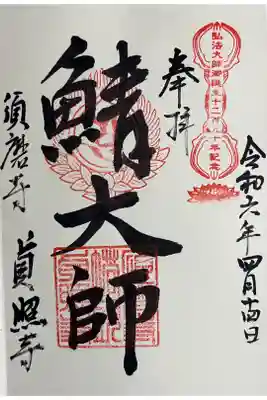 弘法大師御誕生千二百五十年記念
令和六年四月日
奉拝
鯖大師
須磨寺
貞照寺